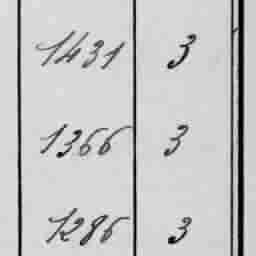 1431 3
1366 3
1286 3